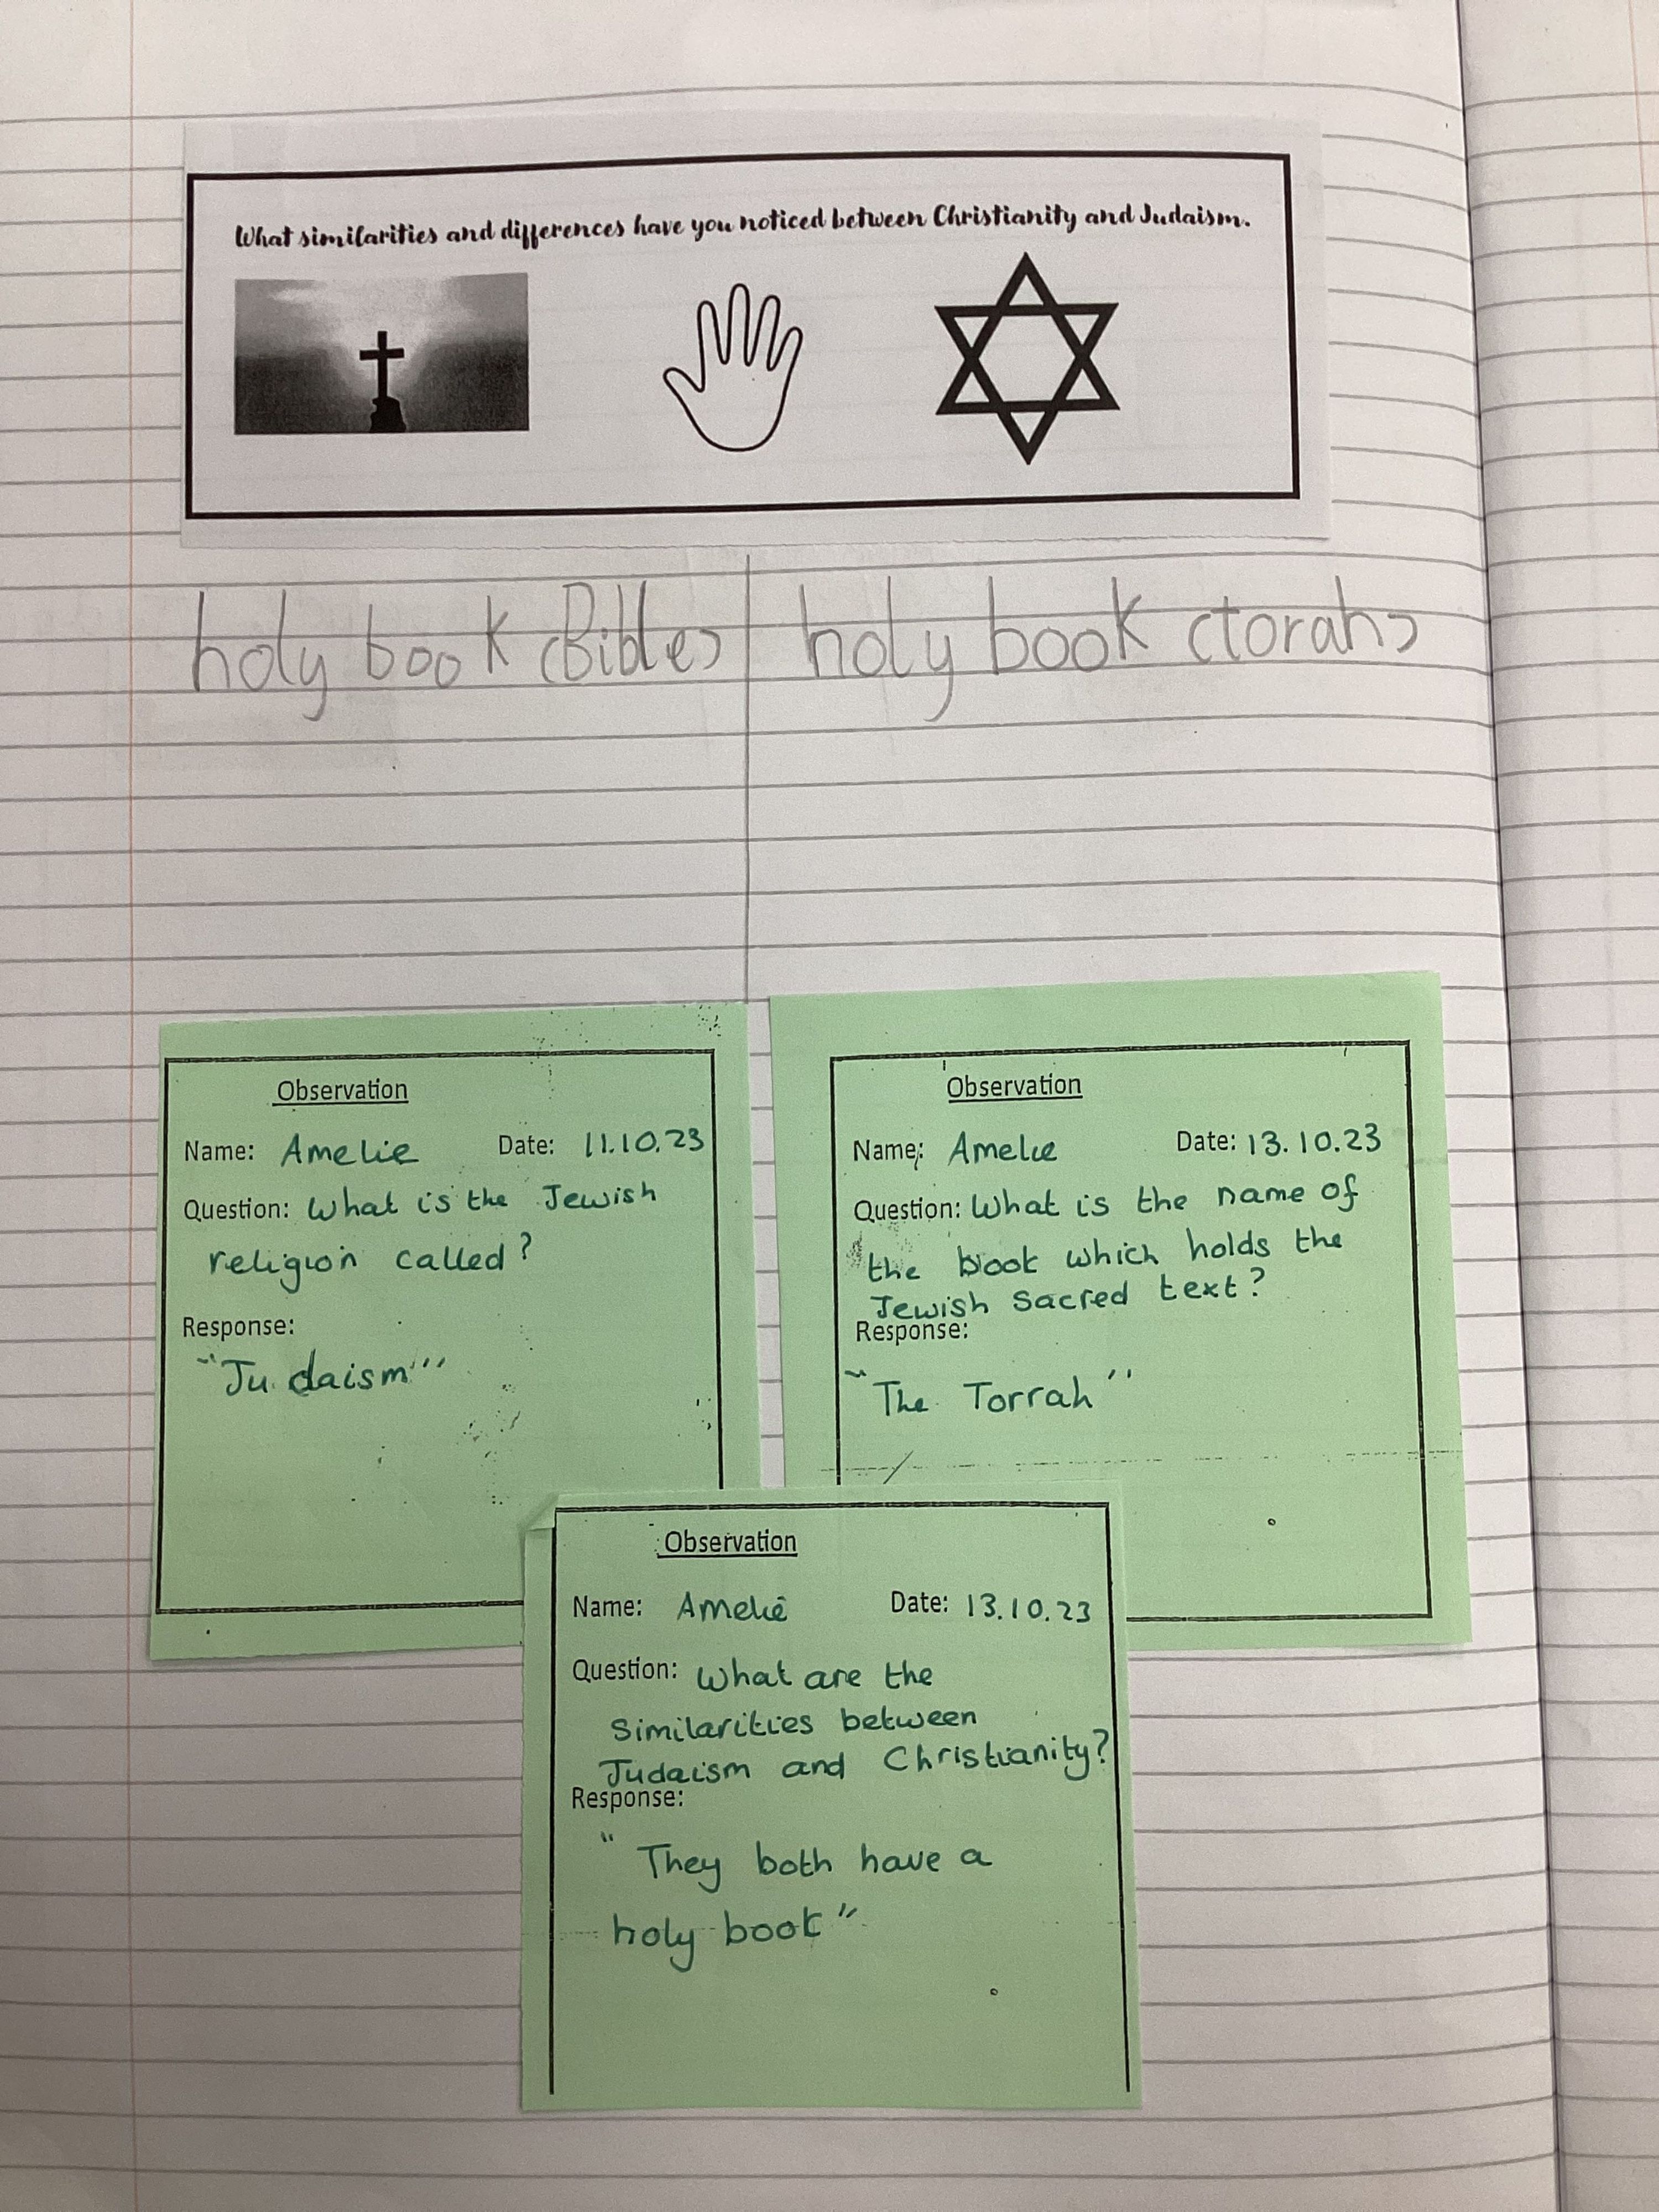 What similarities and differences have you noticed between Christianity and Judaism.
holy book (Bible) holy book (torah)
Observation
Name: Amelie Date: 11.10.23
Question: What is the Jewish
religion called?
Response:
"Judaism"
Observation
Name: Amelie Date: 13.10.23
Question: What is the name of
the book which holds the
Jewish sacred text?
Response:
"The Torrah"
Observation
Name: Amelie Date: 13.10.23
Question: What are the
similarities between
Judaism and Christianity?
Response:
"They both have a
holy book"